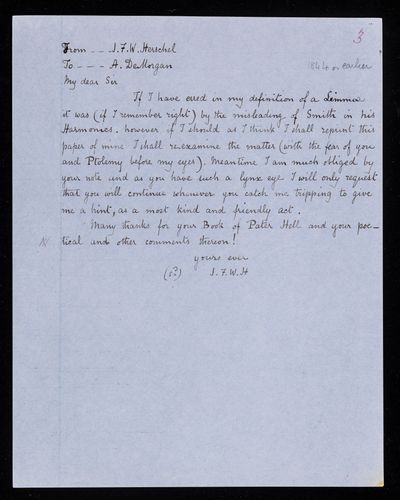 3
From - - J.F.W. Herschel
To - - - A. DeMorgan
1844 or earlier
My dear Sir
If I have erred in my definition of a Limma
it was (if I remember right) by the misleading of Smith in his
Harmonics. however if I should as I think I shall reprint this
paper of mine I shall re-examine the matter (with the fear of you
and Ptolemy before my eyes). Meantime I am much obliged by
your note and as you have such a lynx eye I will only request
that you will continue whenever you catch me tripping to give
me a hint, as a most kind and friendly act.
Many thanks for your Book of Pater Hell and your poe-
tical and other comments thereon!
yours ever
J.F.W.H